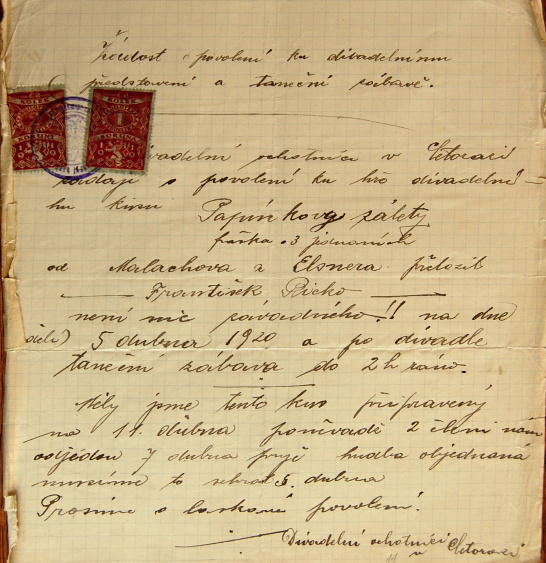 Žádost o povolení ku divadelnímu
představení a taneční zábavě.
KOLEK
1
KORUNA
divadelní ochotníci v Ctoraci
žádají o povolení ku hře divadelní=
ho kusu Papínkovy zálety
fraška o 3 jednáních
od Malachova a Elsnera přeložil
František
není nic závadného!! na dne
5 dubna 1920 a po divadle
taneční zábava do 2 h ráno.
Měly jsme tento kus připravený
na 11. dubna poněvadž 2 členi nám
odjedou 7 dubna pryč hudba objednaná
musíme to sehrát 5. dubna
Prosíme o laskavé povolení.
Divadelní ochotníci
v